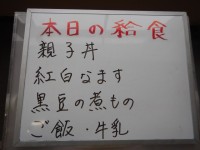 本日の給食
親子丼
紅白なます
黒豆の煮もの
ご飯・牛乳